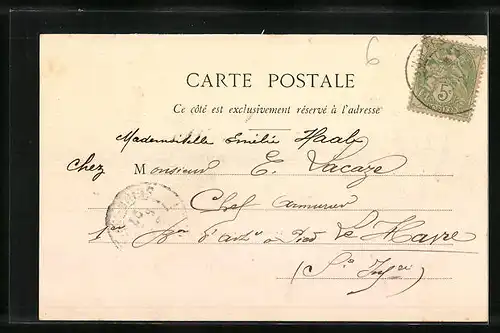 6
CARTE POSTALE
Ce côté est exclusivement réservé à l'adresse
Mademoiselle Emélie Haab
chez Monsieur E. Lacaze
Chef armurier
1er d'art à Pied Le Havre
(Sie Infre)
5